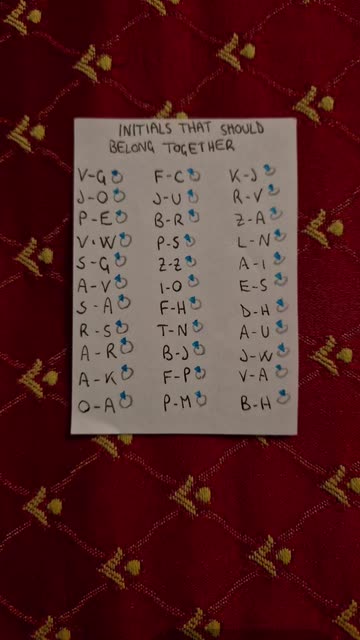 INITIALS THAT SHOULD
BELONG TOGETHER
V-G
J-O
P-E
V-W
S-G
A-V
S-A
R-S
A-R
A-K
O-A
F-C
J-U
B-R
P-S
Z-Z
I-O
F-H
T-N
B-J
F-P
P-M
K-J
R-V
Z-A
L-N
A-I
E-S
D-H
A-U
J-W
V-A
B-H